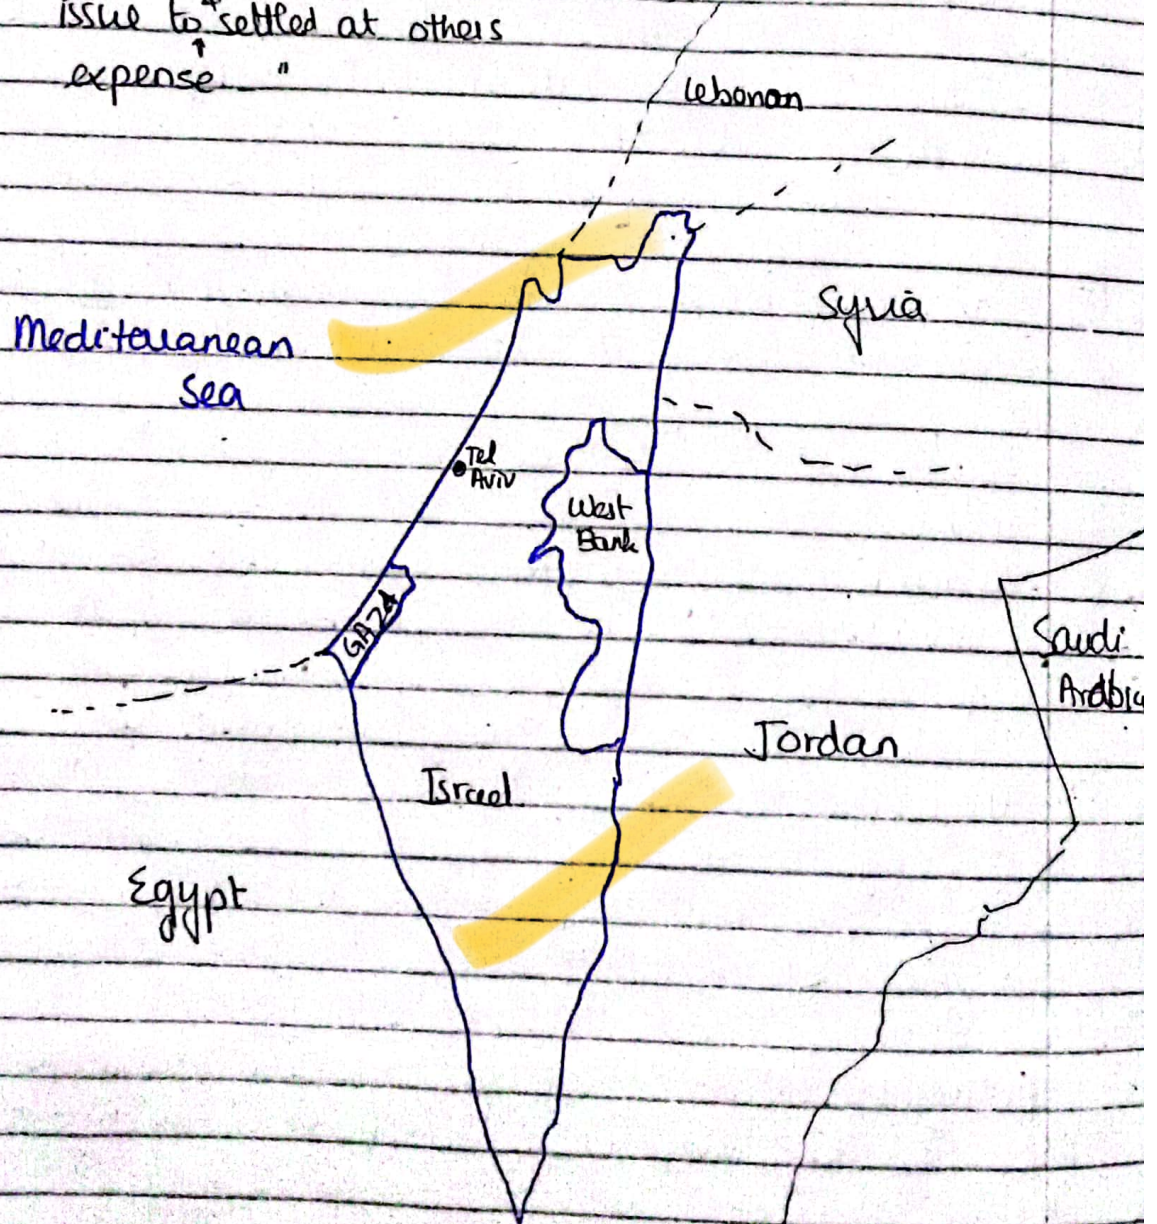 issue to settled at others
expense "
Lebonon
Syria
Mediterranean
Sea
Tel
Aviv
West
Bank
GAZA
Saudi
Arabia
Jordan
Israel
Egypt